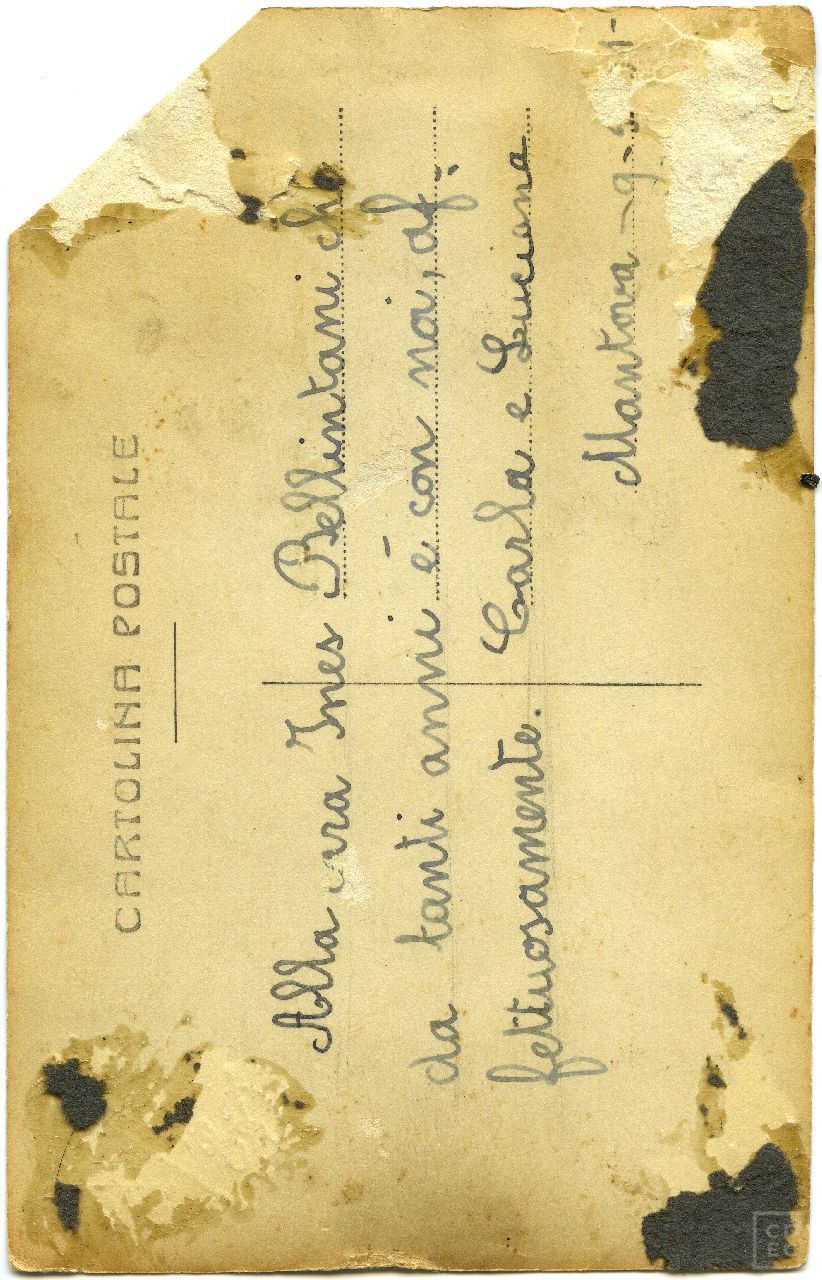 CARTOLINA POSTALE
Alla cara Ines Bellintani che
da tanti anni è con noi, af-
fettuosamente. Carla e Luciana
Mantova - 9-